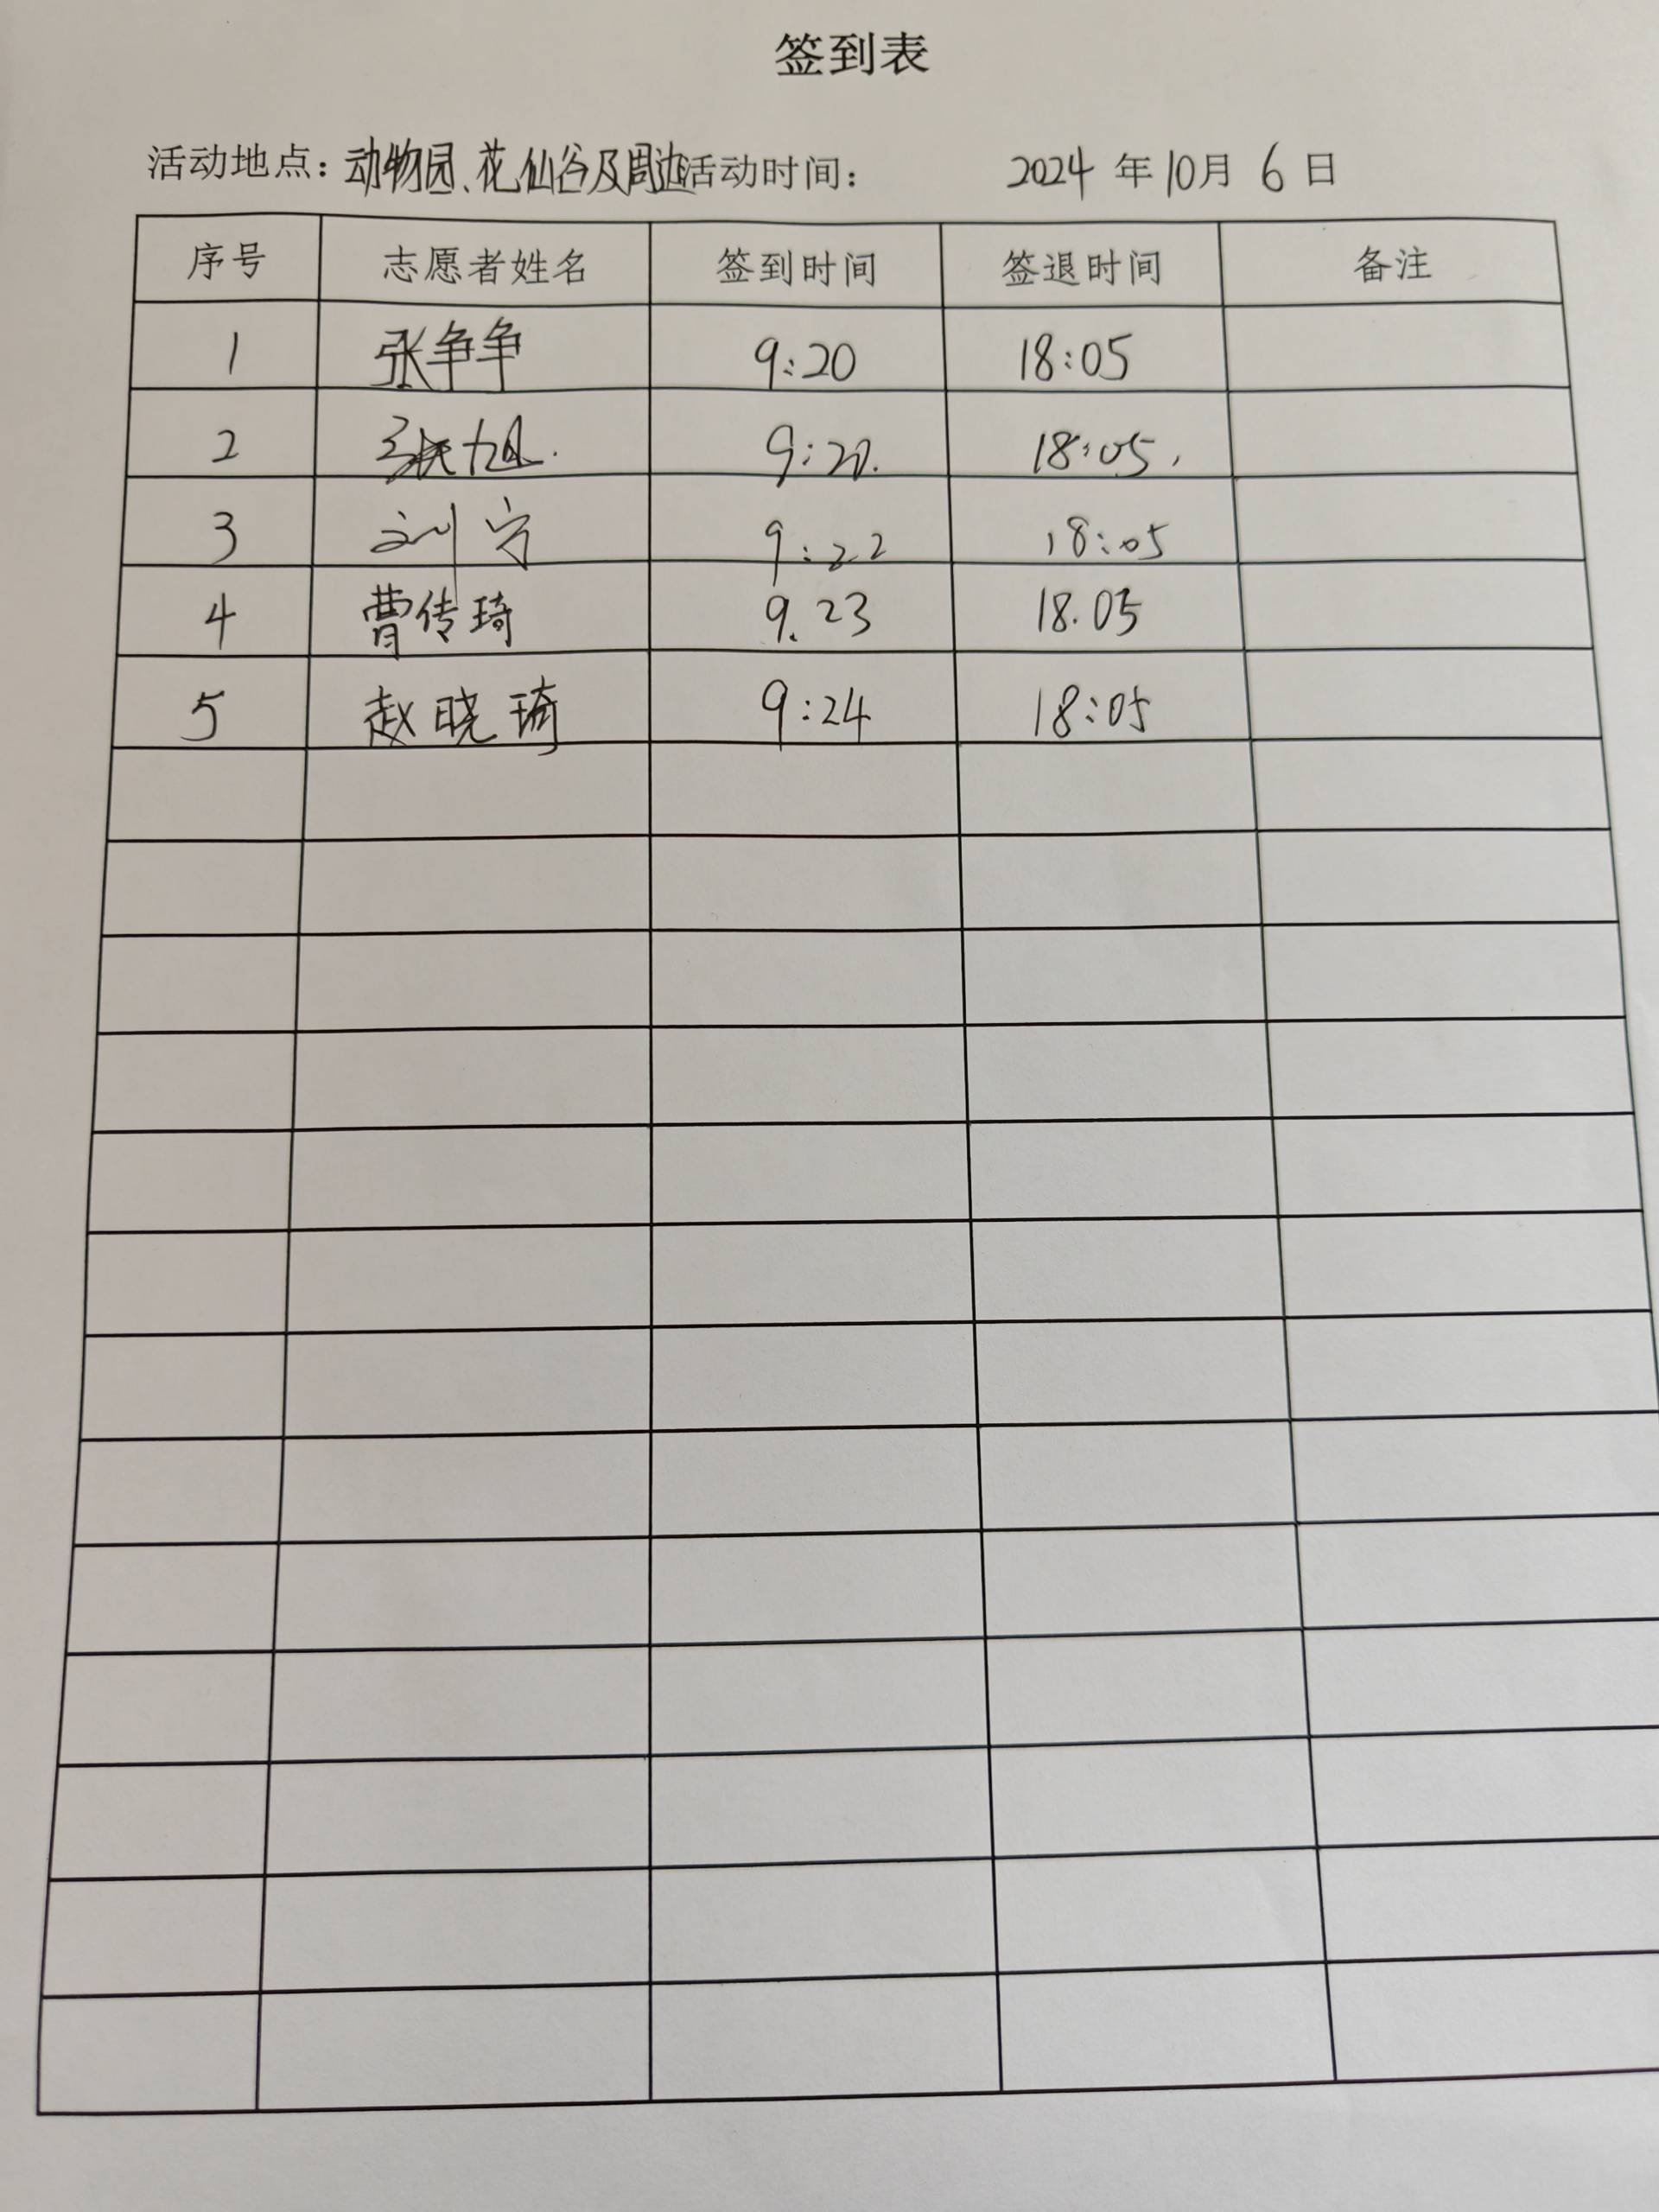 签到表
活动地点：动物园、花仙谷及周边活动时间： 2024 年 10 月 6 日
序号 志愿者姓名 签到时间 签退时间 备注
1 张争争 9:20 18:05
2 张旭 9:20. 18:05.
3 刘宁 9:22 18:05
4 曹传琦 9.23 18.05
5 赵晓琦 9:24 18:05